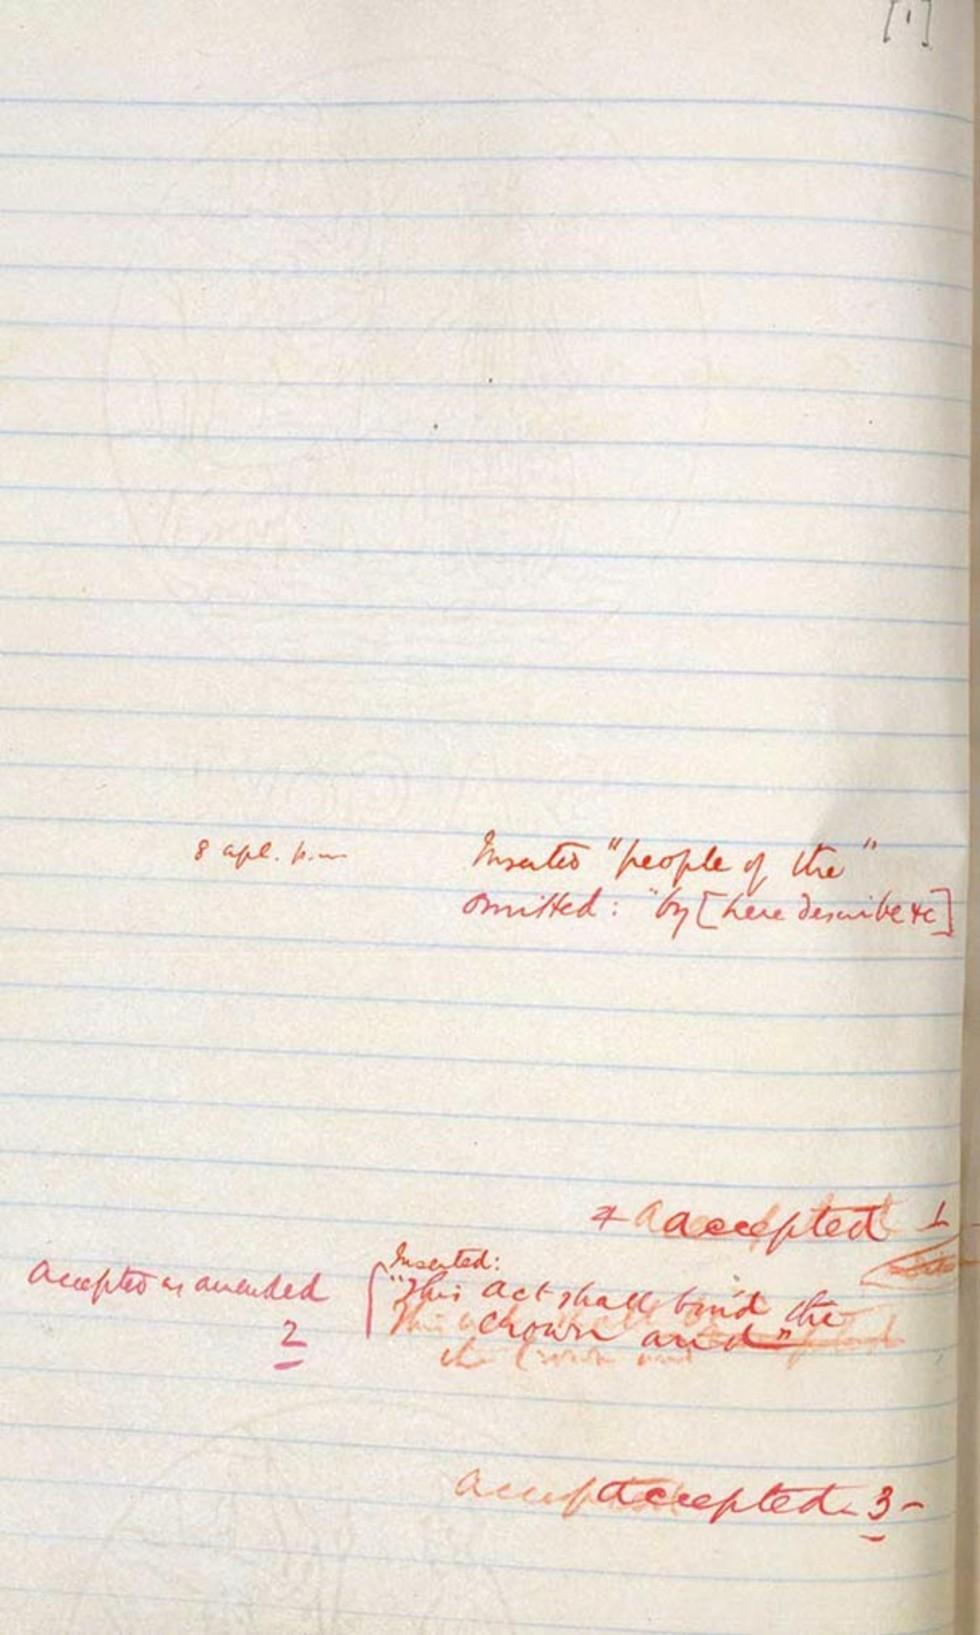 [1]
8 apl. p.m. Inserted "people of the"
omitted: "by [here describe &c]
accepted 1
Inserted:
accepted as amended "This Act shall bind the
2 Crown and"
accepted 3 -